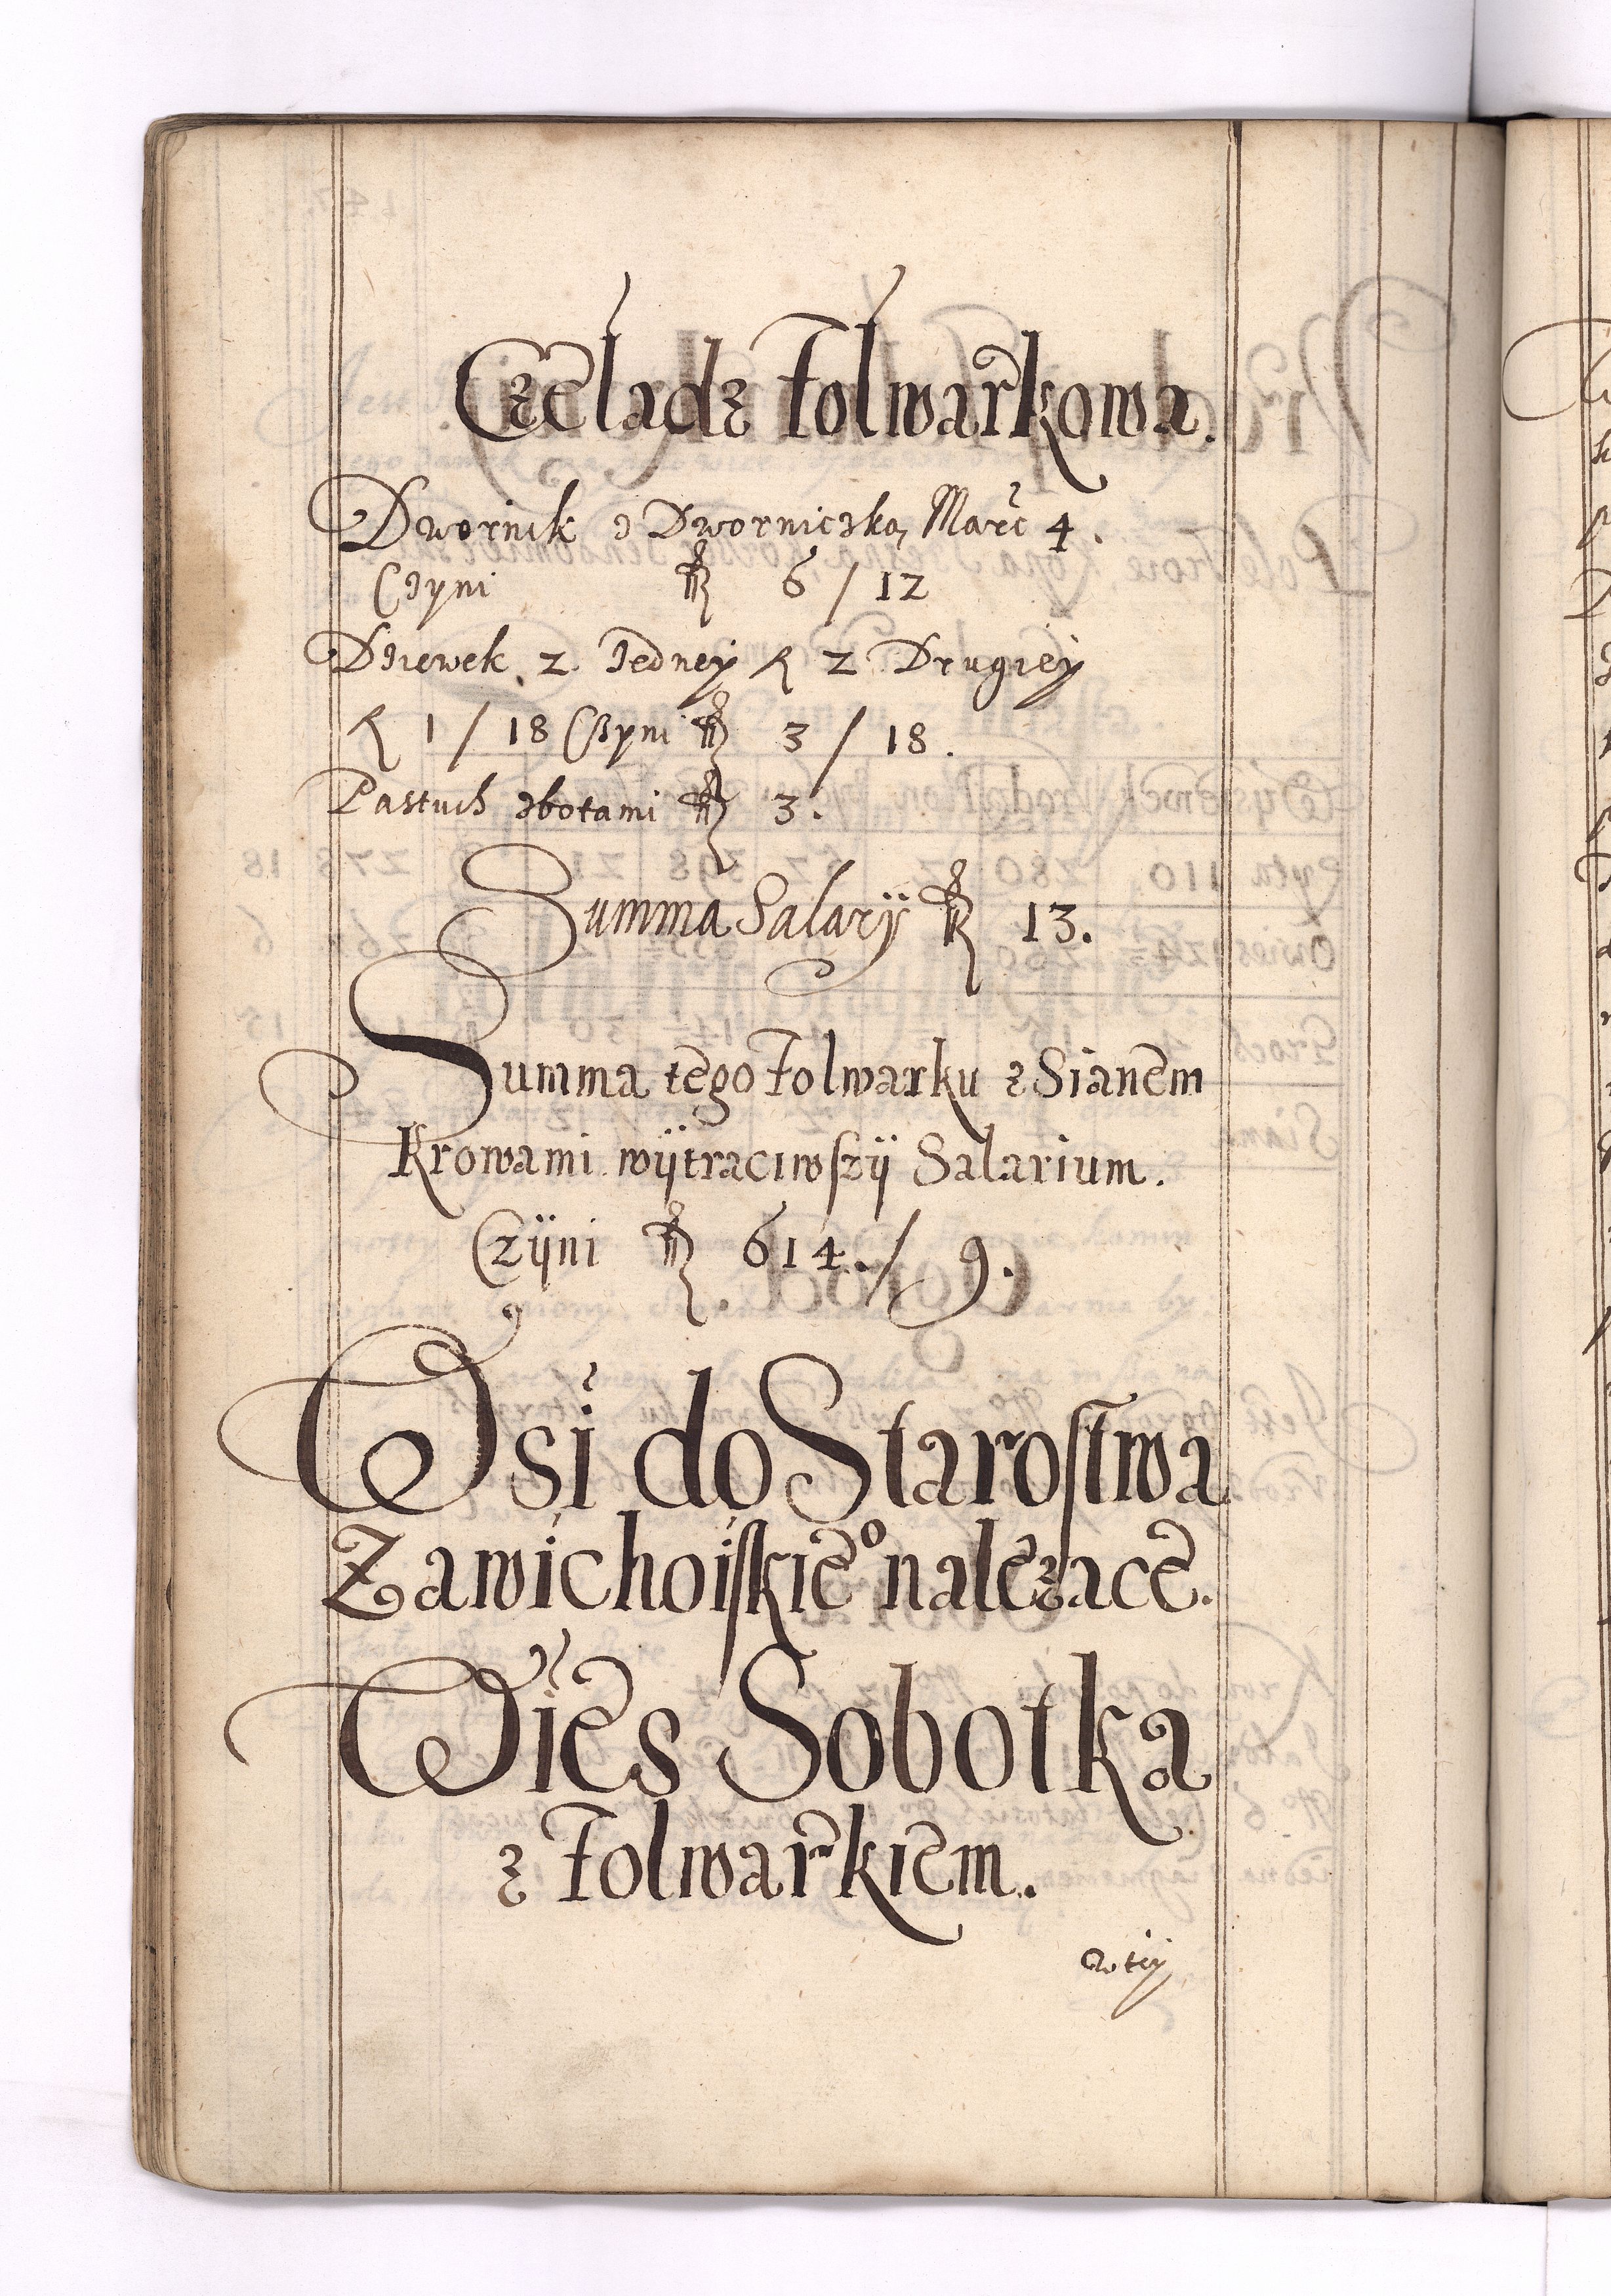 Czeladz Folwarkowa.
Dwornik z Dworniczka, Marc 4.
Czyni fl 6 / 12
Dziewek 2 Jedney fl 2 Drugiey
fl 1 / 18 Czyni fl 3 / 18.
Pastuch zbotami fl 3.
Summa Salarÿ fl 13.
Summa tego Folwarku z Sianem
Krowami wÿtraciwszÿ Salarium.
Czÿni fl 614. / 9.
Wsi do Starostwa
Zawichoiskie⁰ nalezace.
Wies Sobotka
z Folwarkiem.
W tey